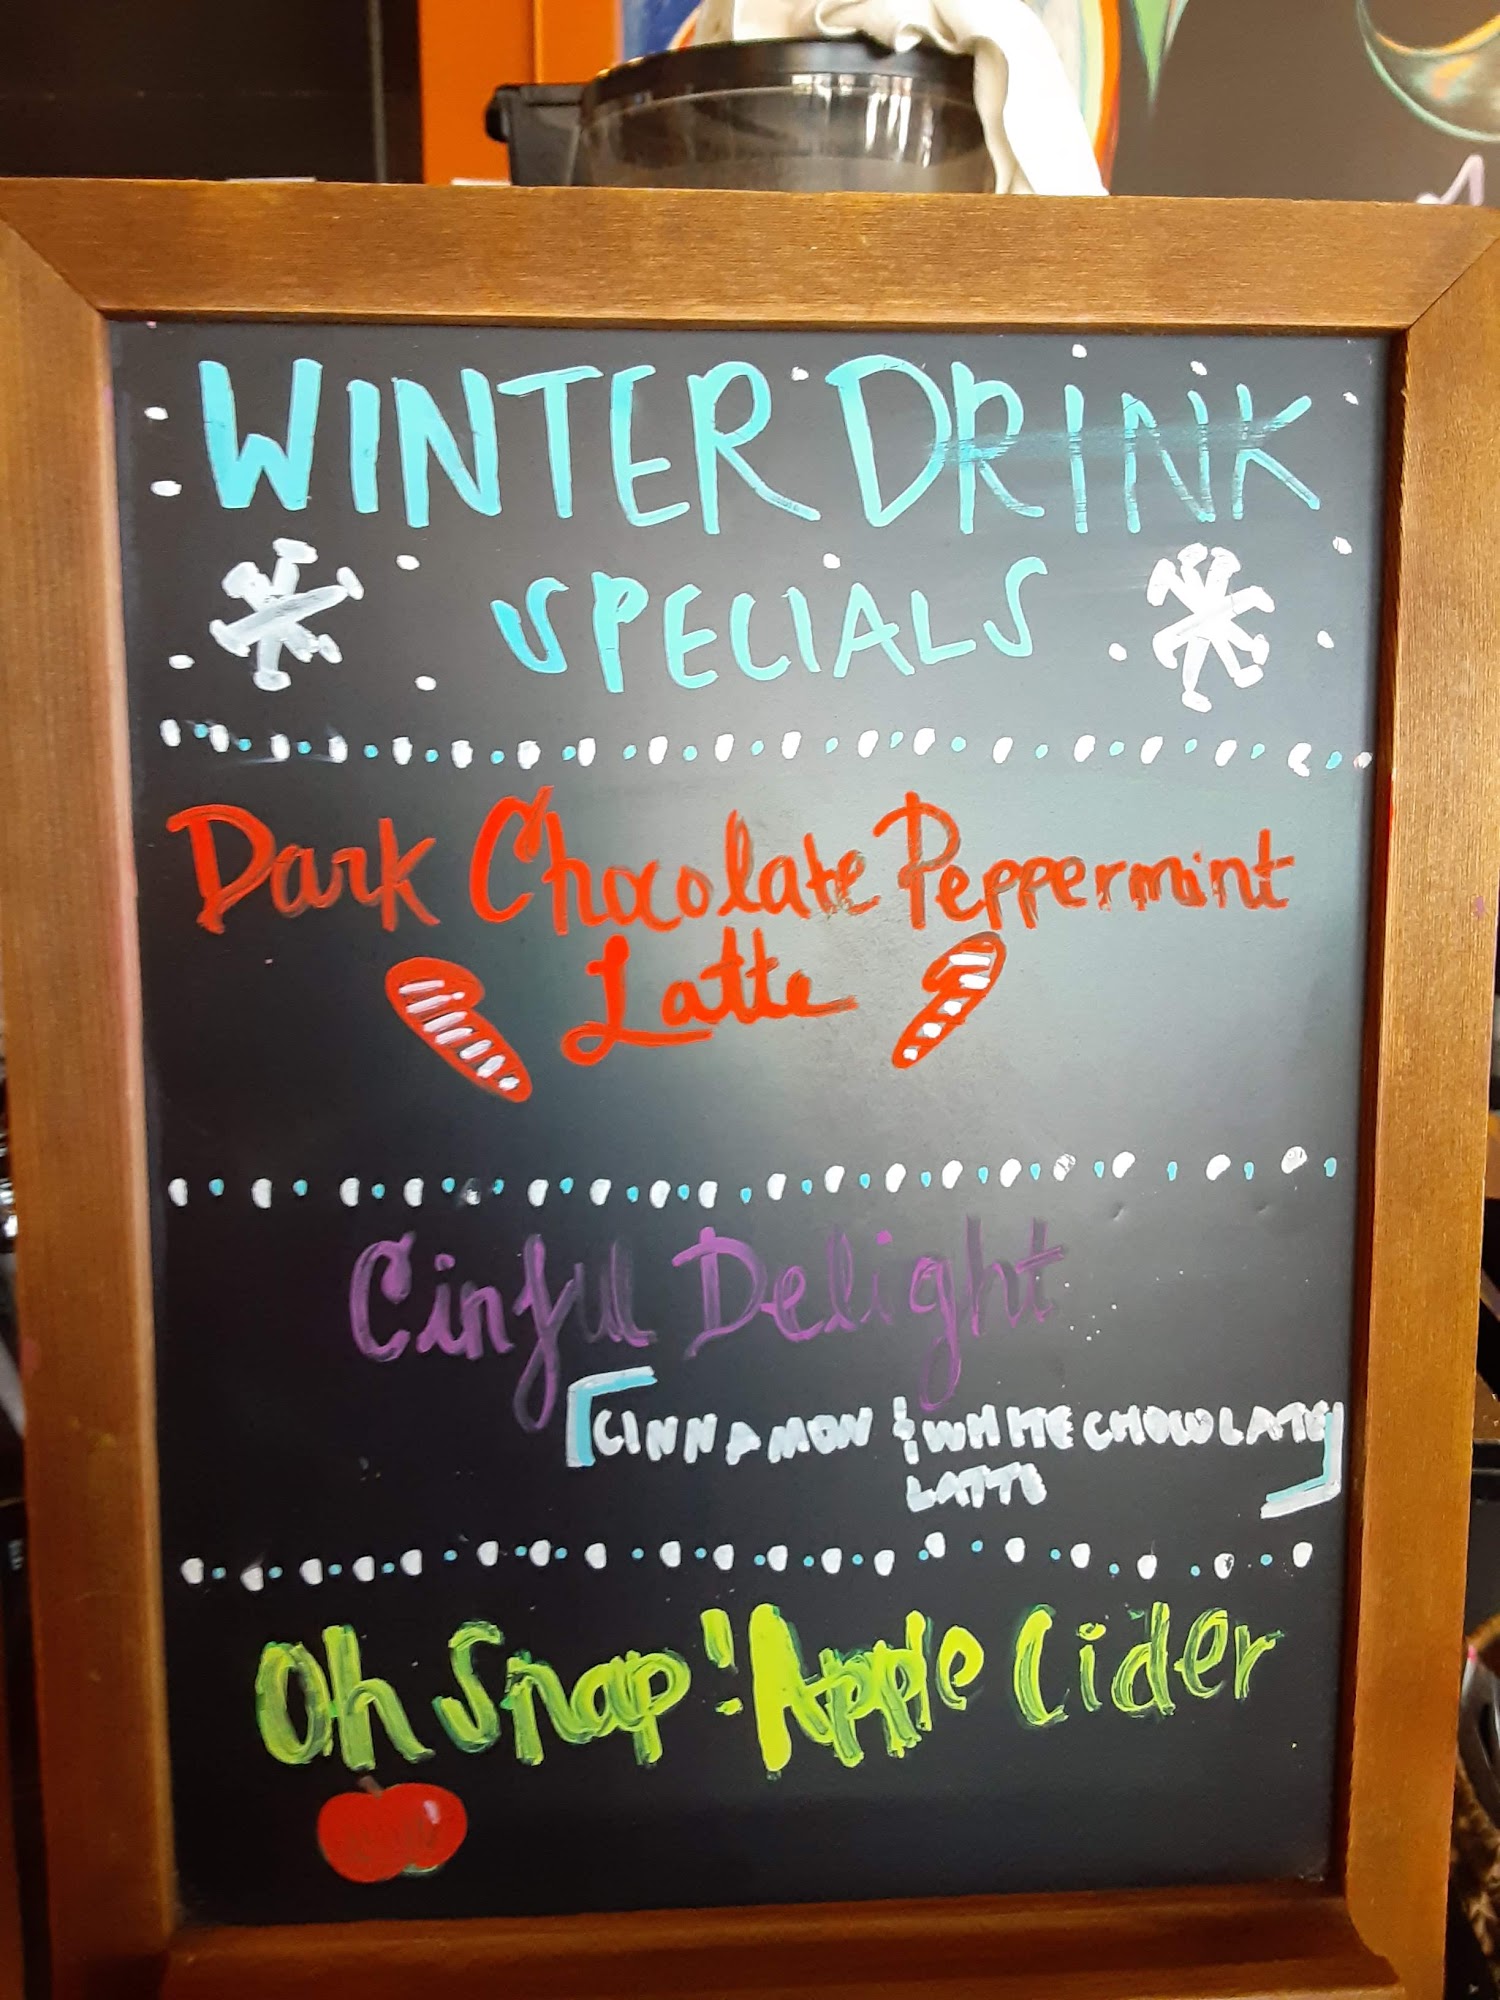 WINTER DRINK
SPECIALS
Dark Chocolate Peppermint
Latte
Cinful Delight
[CINNAMON & WHITE CHOCOLATE
LATTE]
Oh Snap! Apple Cider